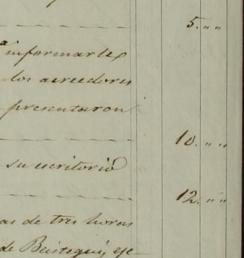 5. " "
informarles
los acreedores
presentaron
10. " "
su escritorio
12. " "
as de tres horas
de Beistegui, eje-